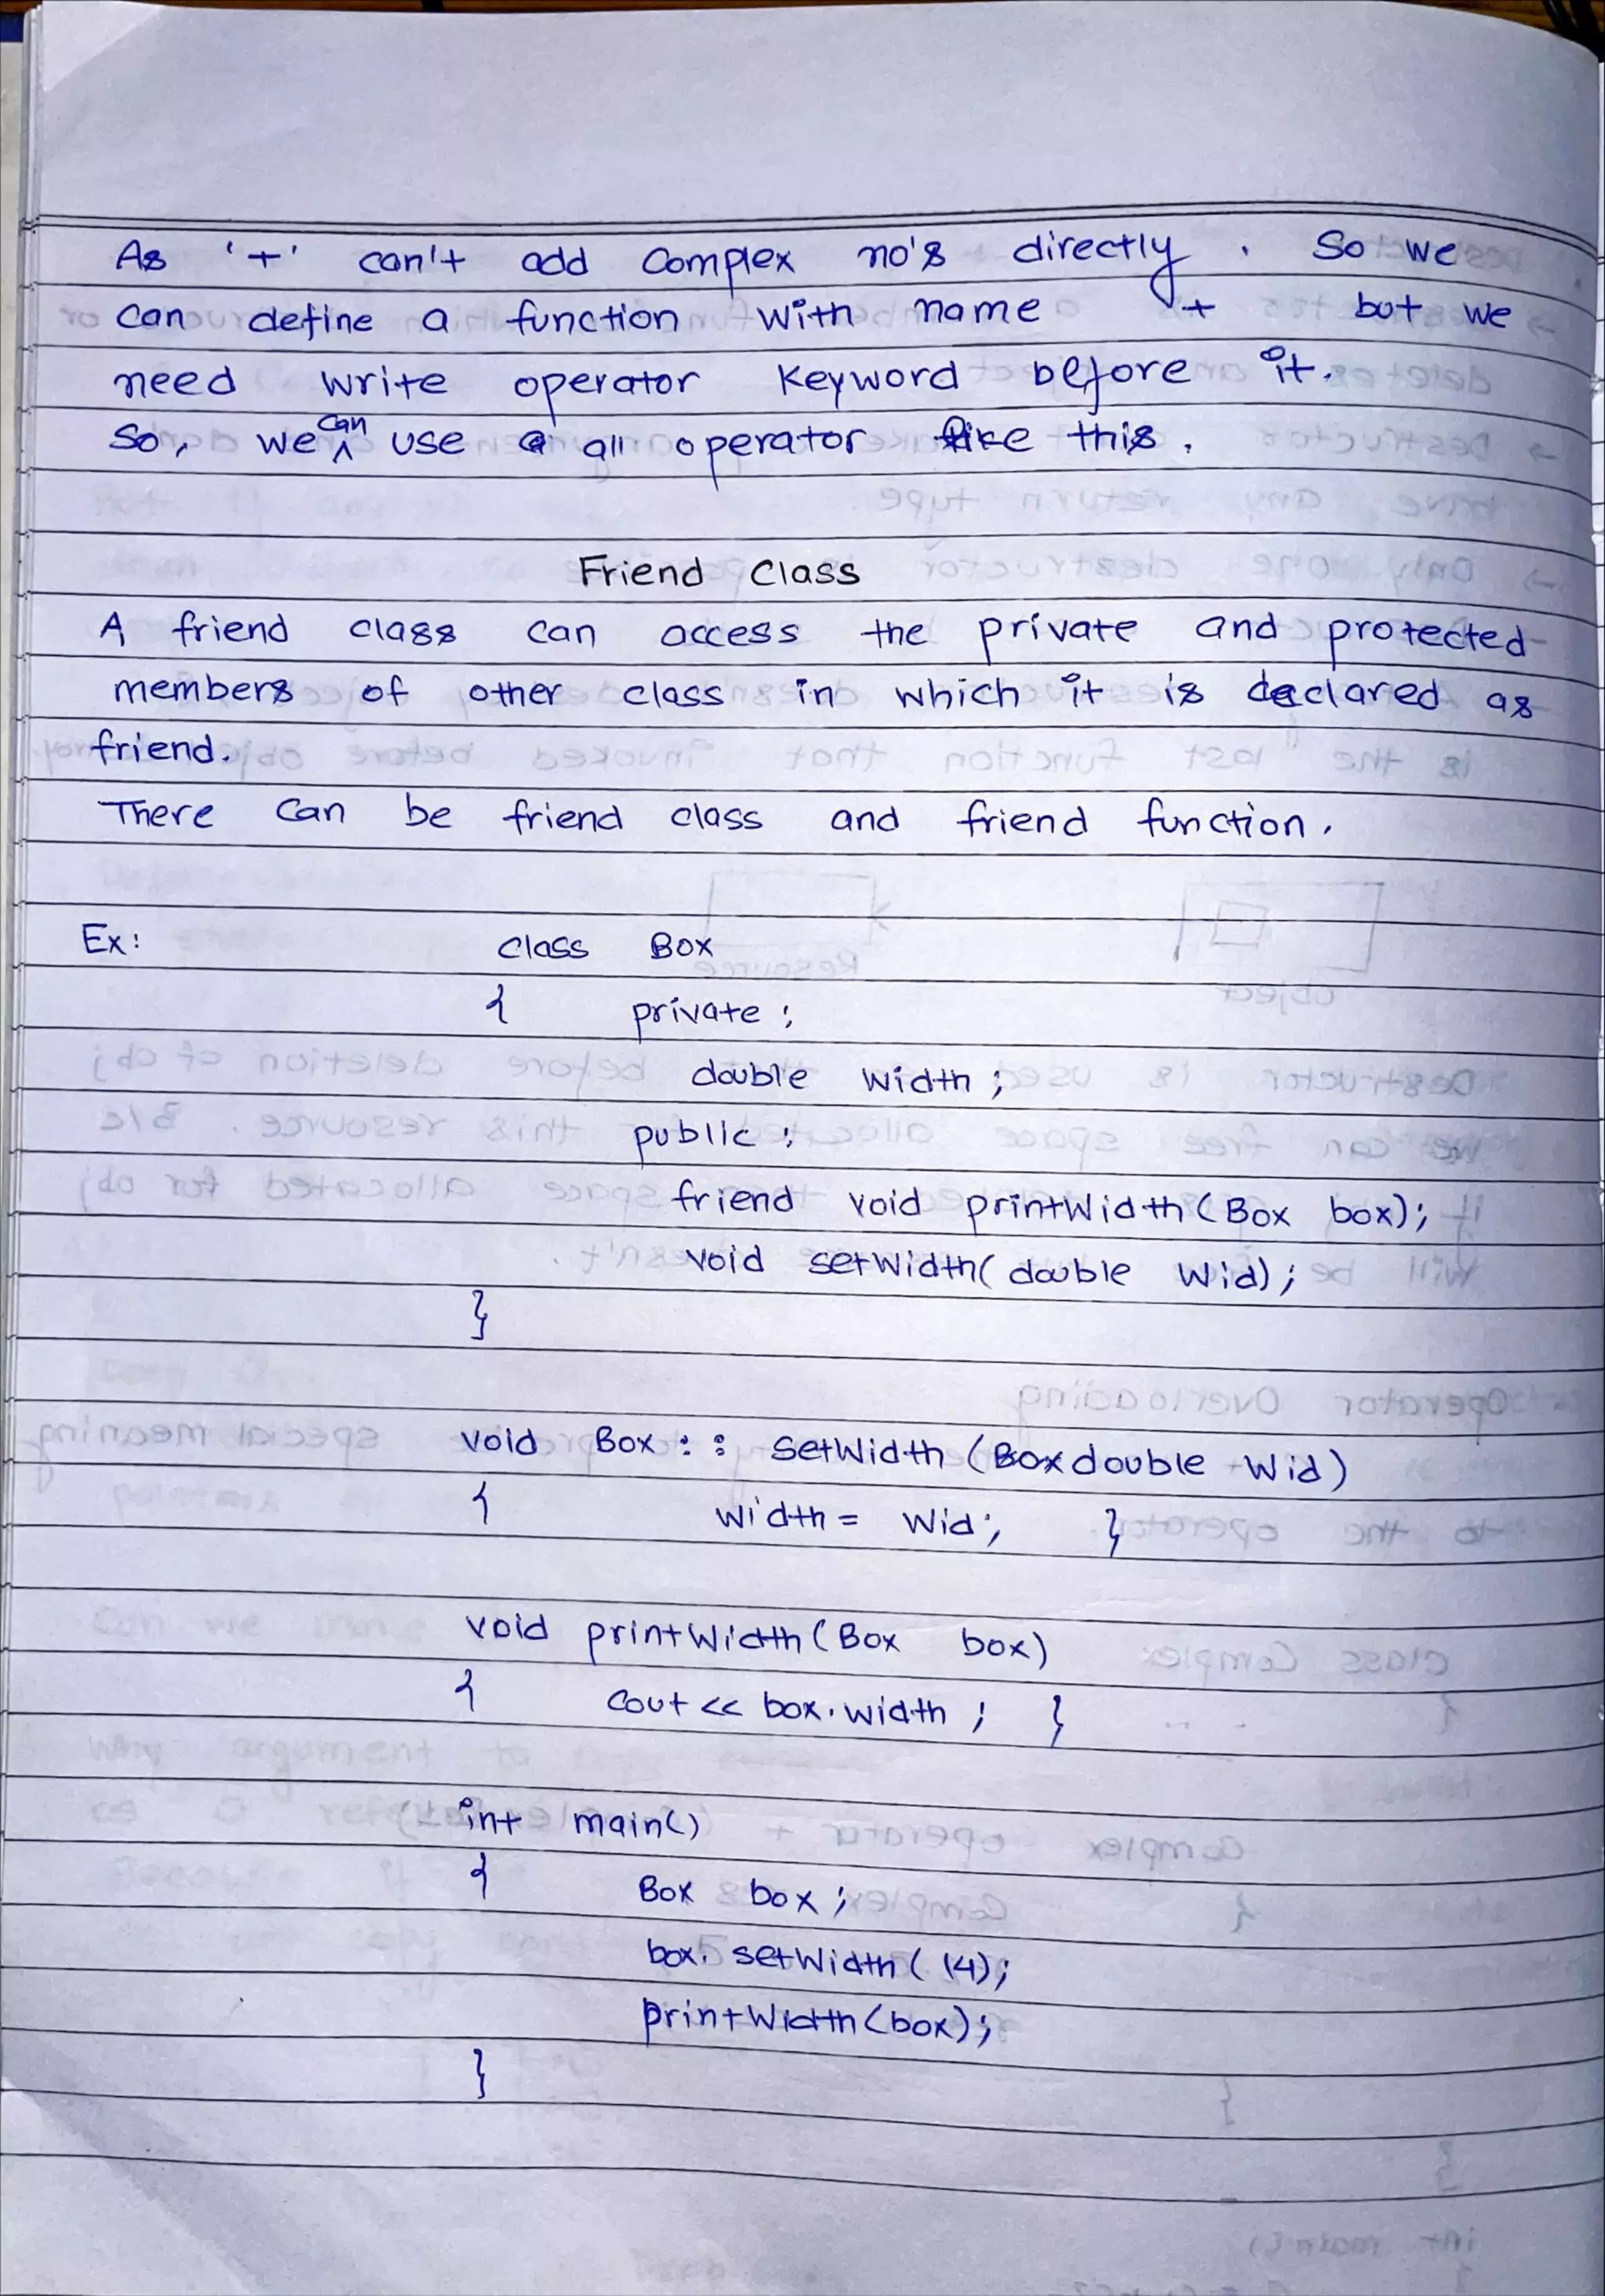 As '+' can't add Complex no's directly. So we
can define a function with name + but we
need write operator keyword before it.
So, we can use all operator like this.
Friend Class
A friend class can access the private and protected
members of other class in which it is declared as
friend.
There can be friend class and friend function.
Ex: class Box
{ private:
double width;
public:
friend void printWidth(Box box);
void setWidth(double wid);
}
void Box :: setWidth (Box double wid)
{ width = wid; }
void printWidth(Box box)
{ cout << box.width; }
int main()
{ Box box;
box.setWidth(14);
printWidth(box);
}